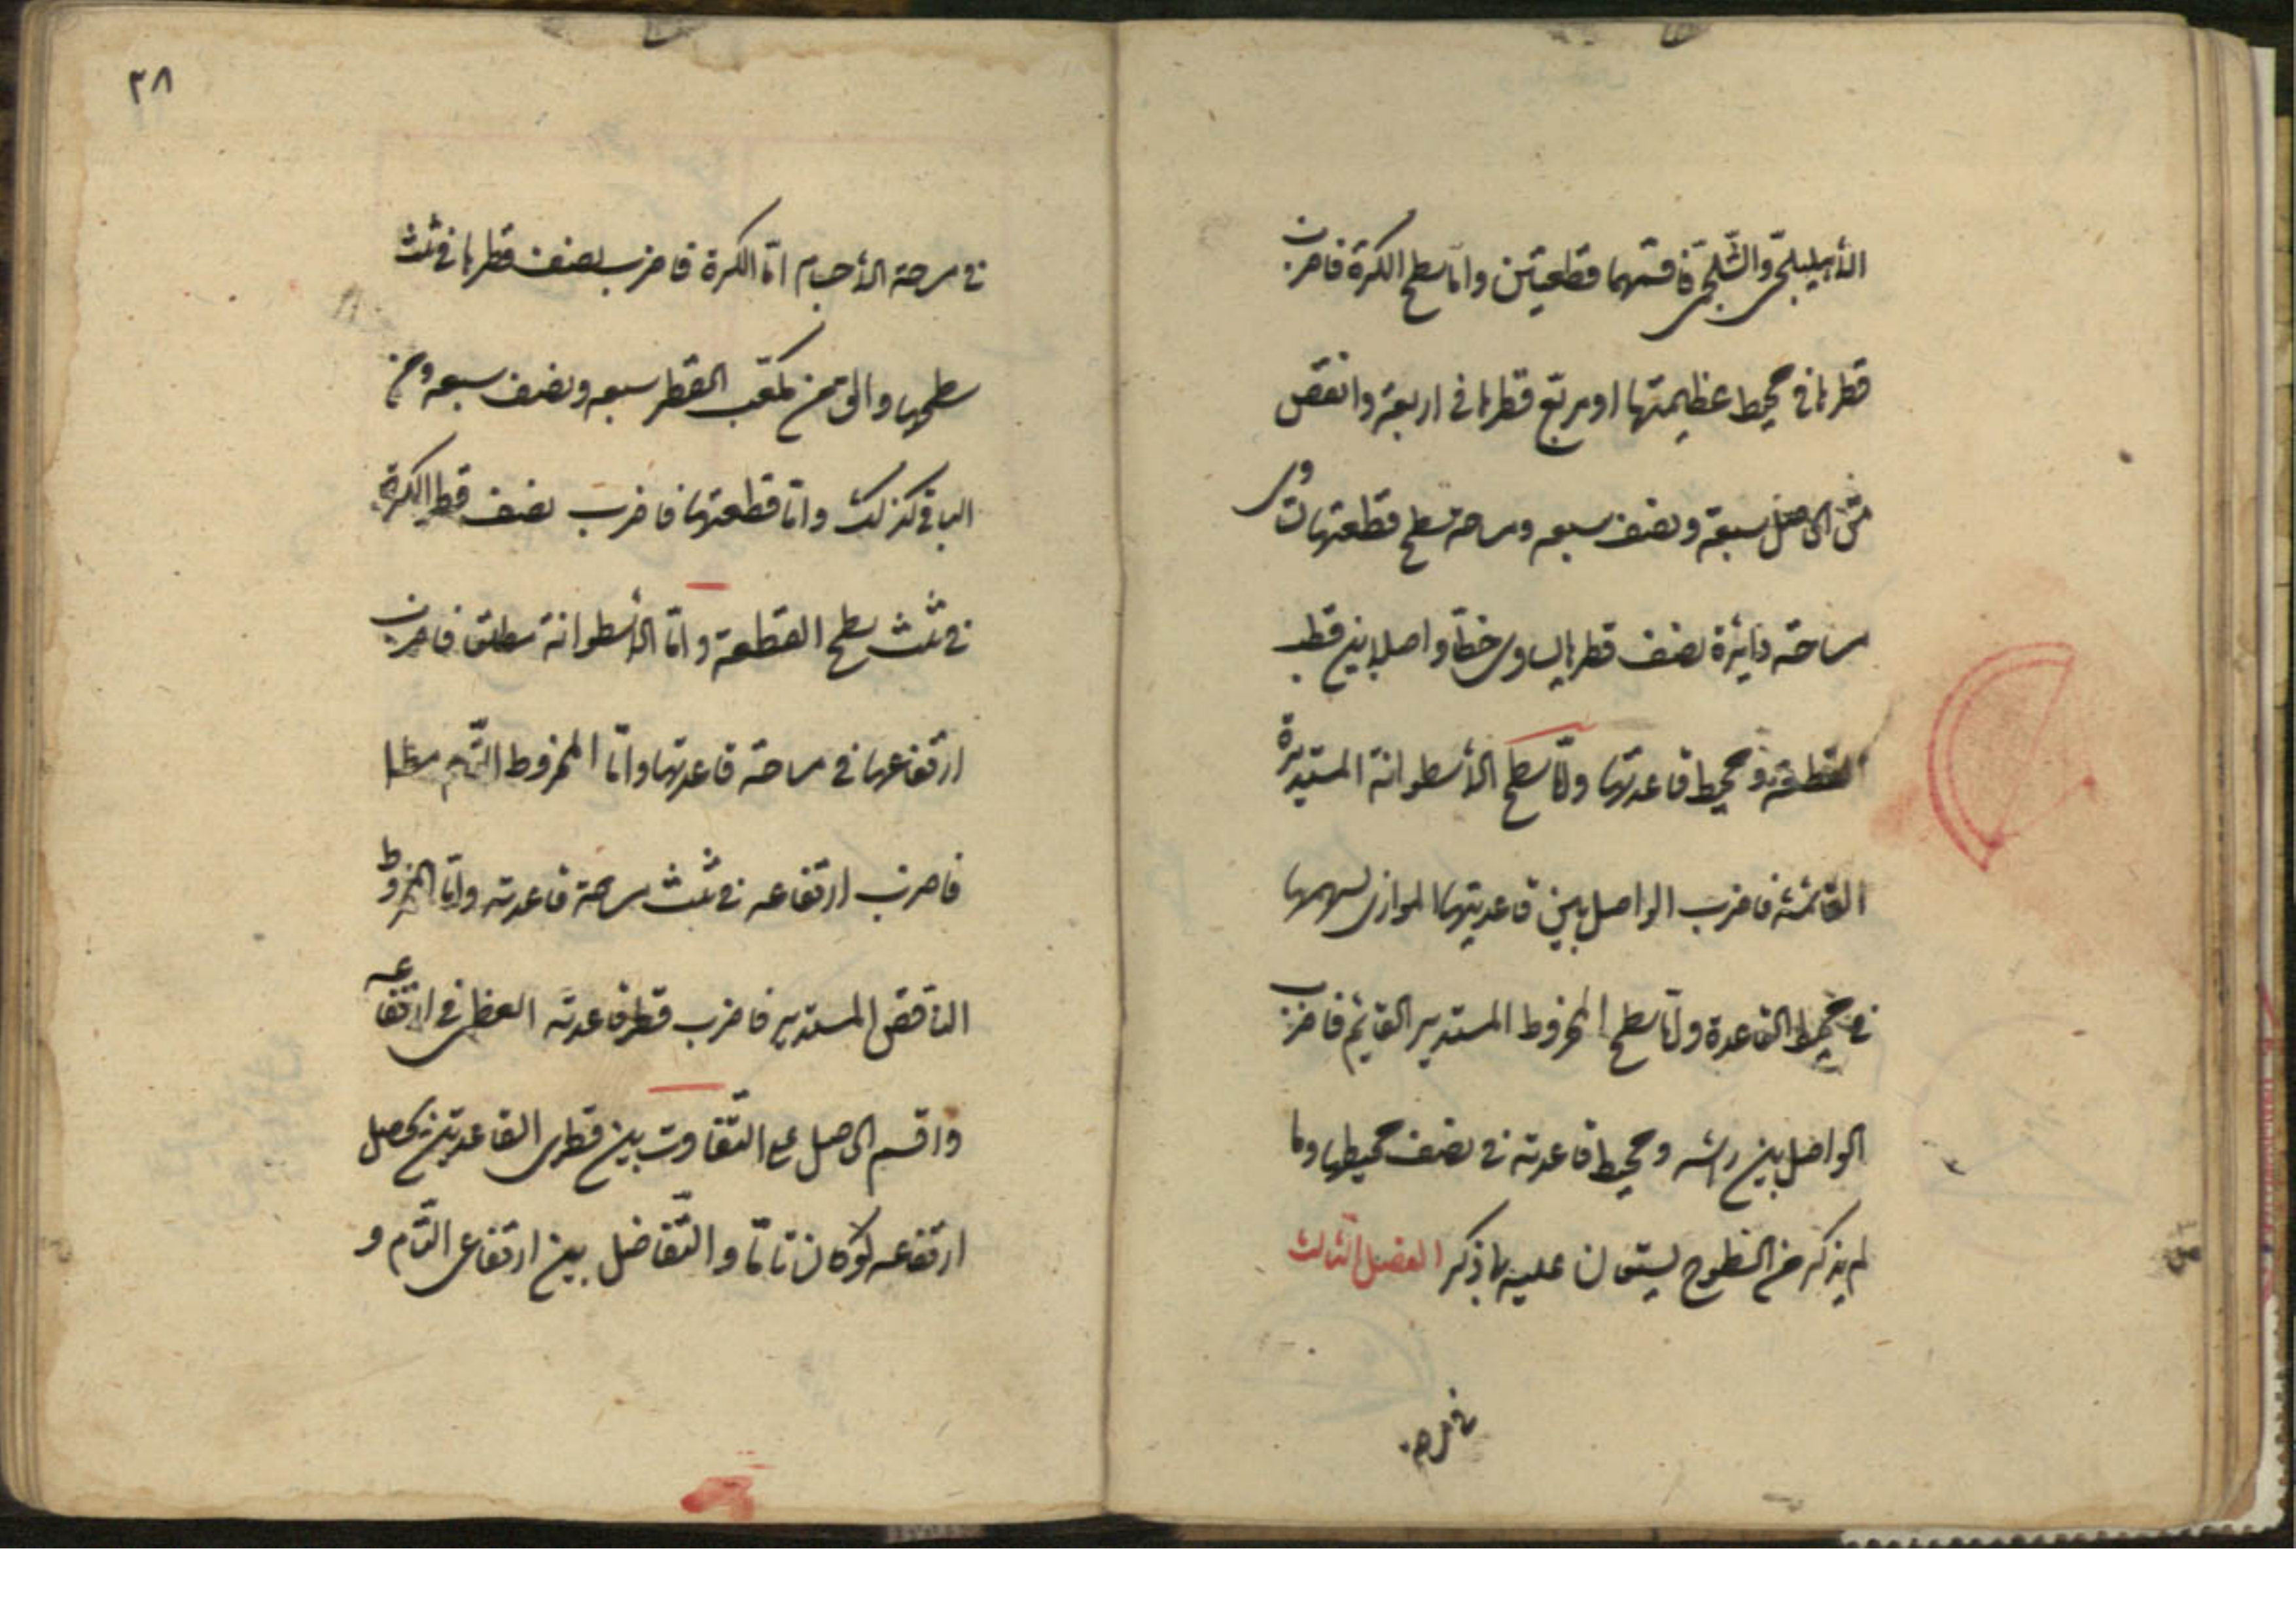 الأهليلجي والشلجمي فاقسمهما قطعتين واما سطح الكرة فاضرب
قطرها في محيط عظيمتها او مربع قطرها في اربعة وانقص
من الحاصل سبعة ونصف سبعه ومساحة سطح قطعتها تساوي
مساحة دائرة نصف قطرها يساوي خطا واصلا بين قطب
القطعة ومحيط قاعدتها وامّا سطح الأسطوانة المستديرة
القائمة فاضرب الواصل بين قاعدتيها الموازي لسهمها
في محيط القاعدة وامّا سطح المخروط المستدير القائم فاضرب
الواصل بين رأسه ومحيط قاعدته في نصف محيطها وما
لم يذكر من السّطوح يستعان عليه بما ذكر الفصل الثالث
في مساحة
٣٨
في مساحة الأجسام امّا الكرة فاضرب نصف قطرها في ثلث
سطحها والق من مكعّب القطر سبعه ونصف سبعه ومن
الباقي كذلك وامّا قطعتها فاضرب نصف قطر الكرة
في ثلث سطح القطعة وامّا الأسطوانة مطلقا فاضرب
ارتفاعها في مساحة قاعدتها وامّا المخروط التّام مطلقا
فاضرب ارتفاعه في ثلث مساحة قاعدته وامّا المخروط
الناقص المستدير فاضرب قطر قاعدته العظمى في ارتفاعه
واقسم الحاصل على التّفاوت بين قطري القاعدتين يحصل
ارتفاعه لو كان تامّا والتّفاضل بين ارتفاعي التّام و